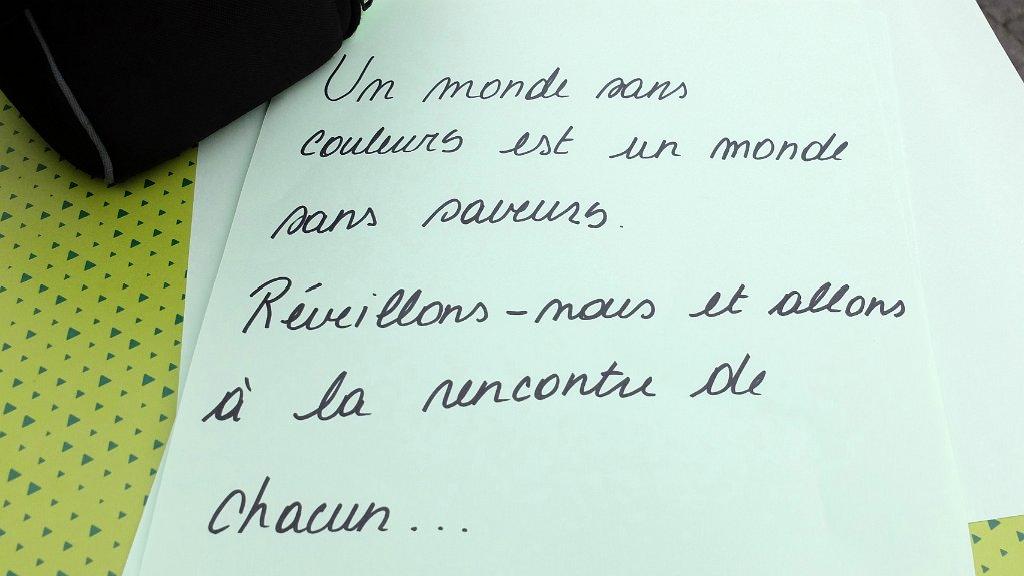 Un monde sans
couleurs est un monde
sans saveurs.
Réveillons-nous et allons
à la rencontre de
chacun...